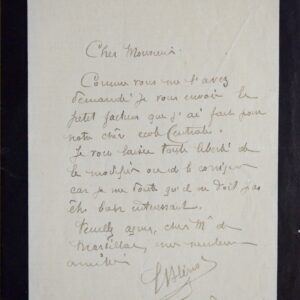 Cher Monsieur
Comme vous me l'avez
demandé je vous envoie le
petit factum que j'ai fait pour
notre chère école Centrale.
Je vous laisse toute liberté de
le modifier ou de le corriger
car je me doute qu'il ne doit pas
être bien intéressant.
Veuillez agréer, cher Mr de
mon meilleur